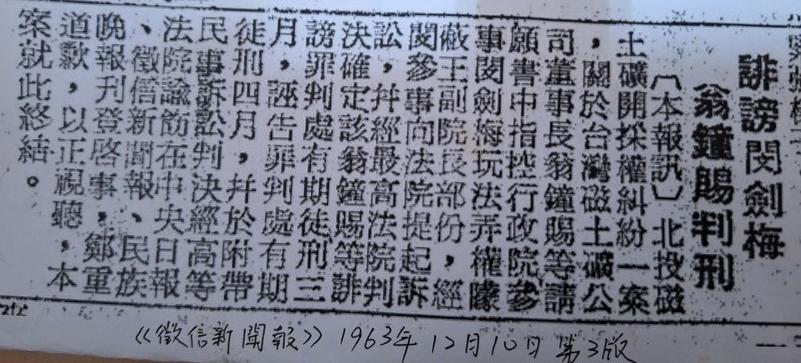 誹謗閔劍梅
翁鐘賜判刑
〔本報訊〕北投磁
土礦開採權糾紛一案
，關於台灣磁土礦公
司董事長翁鐘賜等請
願書中指控行政院參
事閔劍梅玩法弄權矇
蔽王副院長部份，經
閔參事向法院提起訴
訟，幷經最高法院判
決確定該翁鐘賜等誹
謗罪判處有期徒刑三
月，誣告罪判處有期
徒刑四月，幷於附帶
民事訴訟判決經高等
法院諭飭在中央日報
、徵信新聞報、民族
晚報刊登啓事，鄭重
道歉，以正視聽，本
案就此終結。
《徵信新聞報》1963年12月10日 第3版